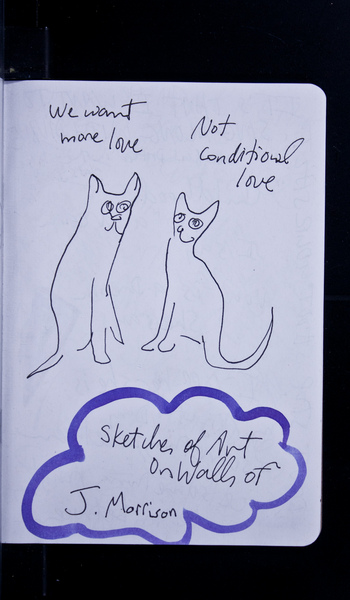 We want
more love
Not
conditional
love
Sketches of Art
on Walls of
J. Morrison